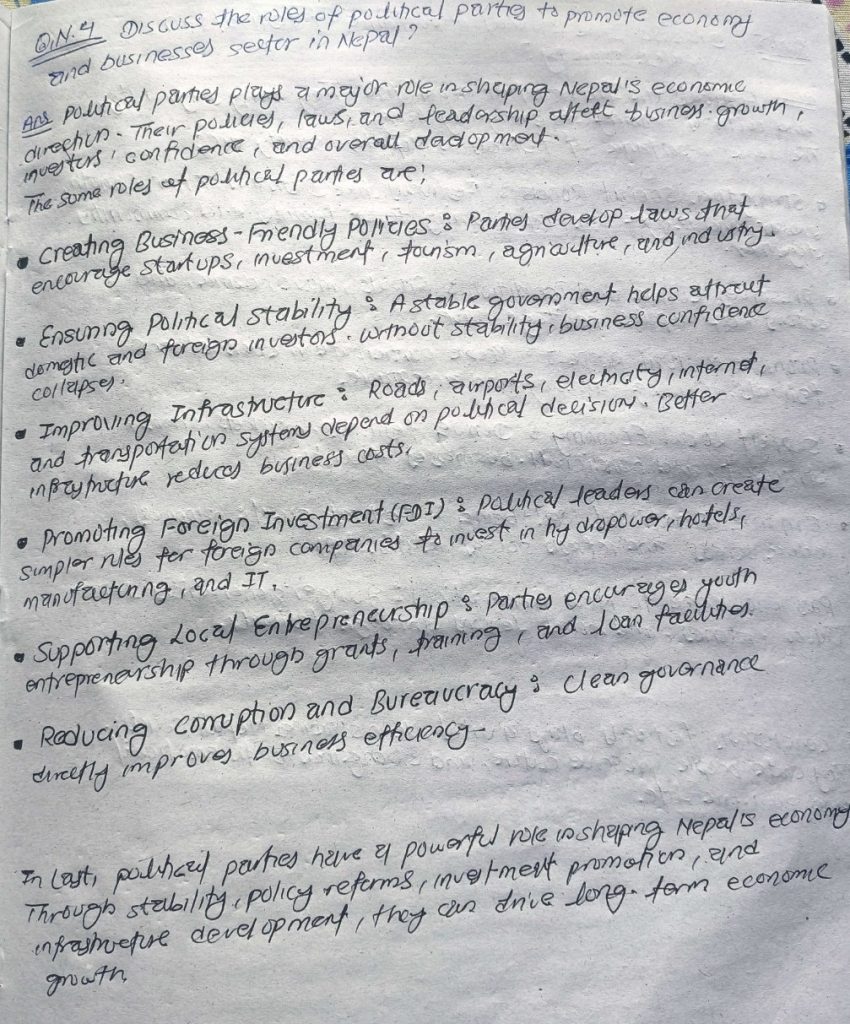 Q.N.4 Discuss the roles of political parties to promote economy
and businesses sector in Nepal?
Ans Political parties plays a major role in shaping Nepal's economic
direction. Their policies, laws, and leadership affect business growth,
investors' confidence, and overall development.
The some roles of political parties are:
• Creating Business-Friendly Policies: Parties develop laws that
encourage startups, investment, tourism, agriculture, and industry.
• Ensuring Political Stability: A stable government helps attract
domestic and foreign investors. without stability, business confidence
collapses.
• Improving Infrastructure: Roads, airports, electricity, internet,
and transportation systems depend on political decision. Better
infrastructure reduces business costs.
• Promoting Foreign Investment (FDI): Political leaders can create
simpler rules for foreign companies to invest in hydropower, hotels,
manufacturing, and IT.
• Supporting Local Entrepreneurship: Parties encourages youth
entrepreneurship through grants, training, and loan facilities.
• Reducing corruption and Bureaucracy: clean governance
directly improves business efficiency.
In last, political parties have a powerful role in shaping Nepal's economy
Through stability, policy reforms, investment promotion, and
infrastructure development, they can drive long-term economic
growth.